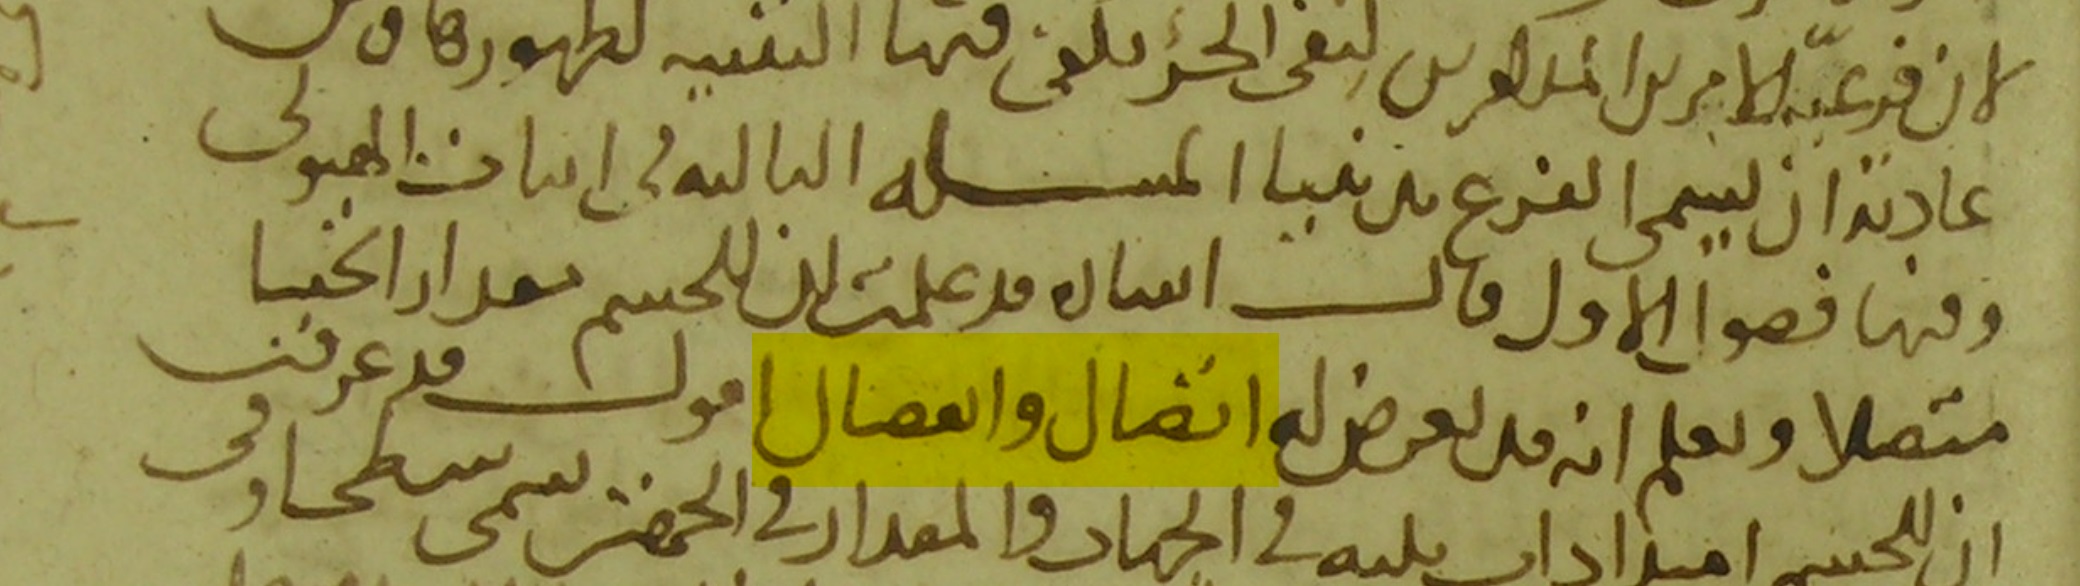 لان فرعية الامرين المذكورين لنفى الجزء يكفى فيها التنبيه لظهورها وان
عادته ان يسمى الفرع تذنيبا المسئله التاليه فى اثبات الهيولى
وفيها فصول الاول قال اشاره قد علمت ان للجسم مقدارا ثخينا
متصلا وتعلم انه قد يعرض له اتصال وانفصال اقول قد عرفت
ان للجسم امتدادات ثلثه فى الجهات والمقدار فى الجهتين يسمى سطحا وفى